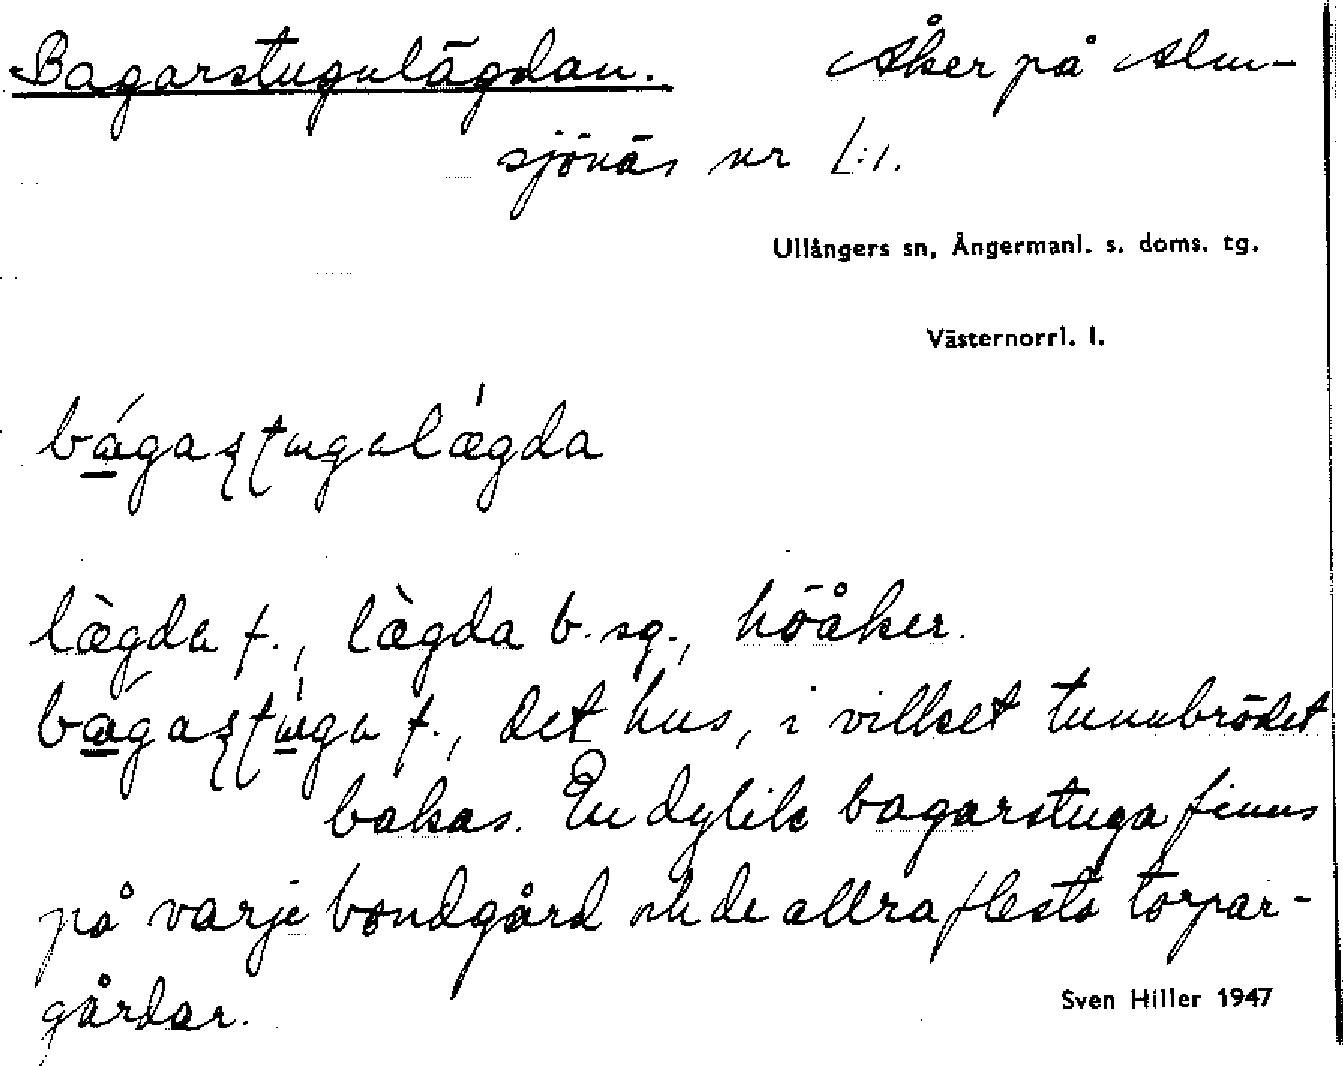 Bagarstugulägdan. Åker på Alm-
sjönäs nr 1:1.
Ullångers sn, Ångermanl. s. doms. tg.
Västernorrl. l.
lægda f., lægda b. sg., höåker.
f., det hus, i vilket tunnbrödet
bakas. En dylik bagarstuga finns
på varje bondgård och de allra flesta torpar-
gårdar.
Sven Hiller 1947